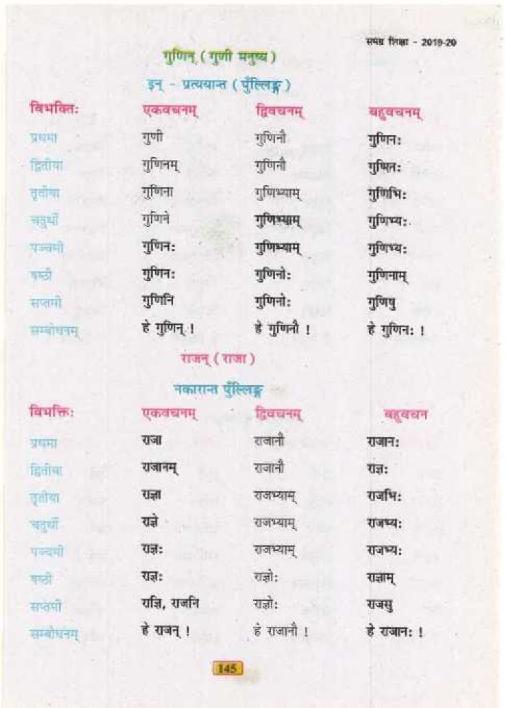 समग्र शिक्षा - 2019-20
गुणिन् ( गुणी मनुष्य )
इन् - प्रत्ययान्त ( पुँल्लिङ्ग )
विभक्तिः एकवचनम् द्विवचनम् बहुवचनम्
प्रथमा गुणी गुणिनौ गुणिनः
द्वितीया गुणिनम् गुणिनौ गुणिनः
तृतीया गुणिना गुणिभ्याम् गुणिभिः
चतुर्थी गुणिने गुणिभ्याम् गुणिभ्यः
पञ्चमी गुणिनः गुणिभ्याम् गुणिभ्यः
षष्ठी गुणिनः गुणिनोः गुणिनाम्
सप्तमी गुणिनि गुणिनोः गुणिषु
सम्बोधनम् हे गुणिन् ! हे गुणिनौ ! हे गुणिनः !
राजन् ( राजा )
नकारान्त पुँल्लिङ्ग
विभक्तिः एकवचनम् द्विवचनम् बहुवचन
प्रथमा राजा राजानौ राजानः
द्वितीया राजानम् राजानौ राज्ञः
तृतीया राज्ञा राजभ्याम् राजभिः
चतुर्थी राज्ञे राजभ्याम् राजभ्यः
पञ्चमी राज्ञः राजभ्याम् राजभ्यः
षष्ठी राज्ञः राज्ञोः राज्ञाम्
सप्तमी राज्ञि, राजनि राज्ञोः राजसु
सम्बोधनम् हे राजन् ! हे राजानौ ! हे राजानः !
145